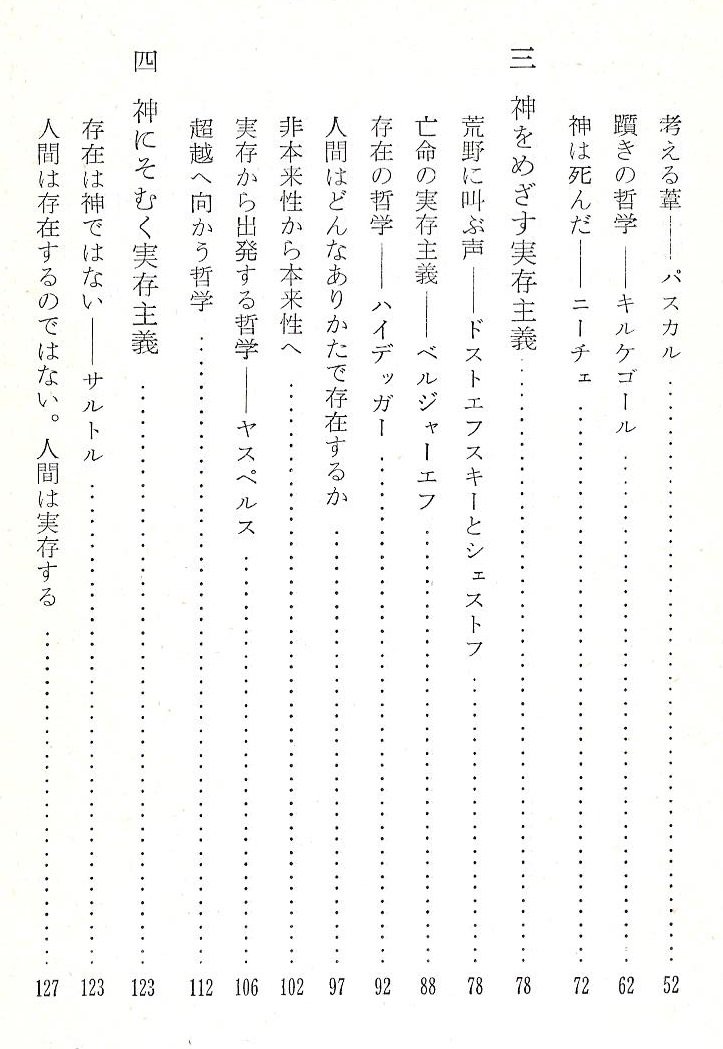 考える葦――パスカル……………………52
躓きの哲学――キルケゴール……………………62
神は死んだ――ニーチェ……………………72
三 神をめざす実存主義……………………78
荒野に叫ぶ声――ドストエフスキーとシェストフ……………………78
亡命の実存主義――ベルジャーエフ……………………88
存在の哲学――ハイデッガー……………………92
人間はどんなありかたで存在するか……………………97
非本来性から本来性へ……………………102
実存から出発する哲学――ヤスペルス……………………106
超越へ向かう哲学……………………112
四 神にそむく実存主義……………………123
存在は神ではない――サルトル……………………123
人間は存在するのではない。人間は実存する……………………127